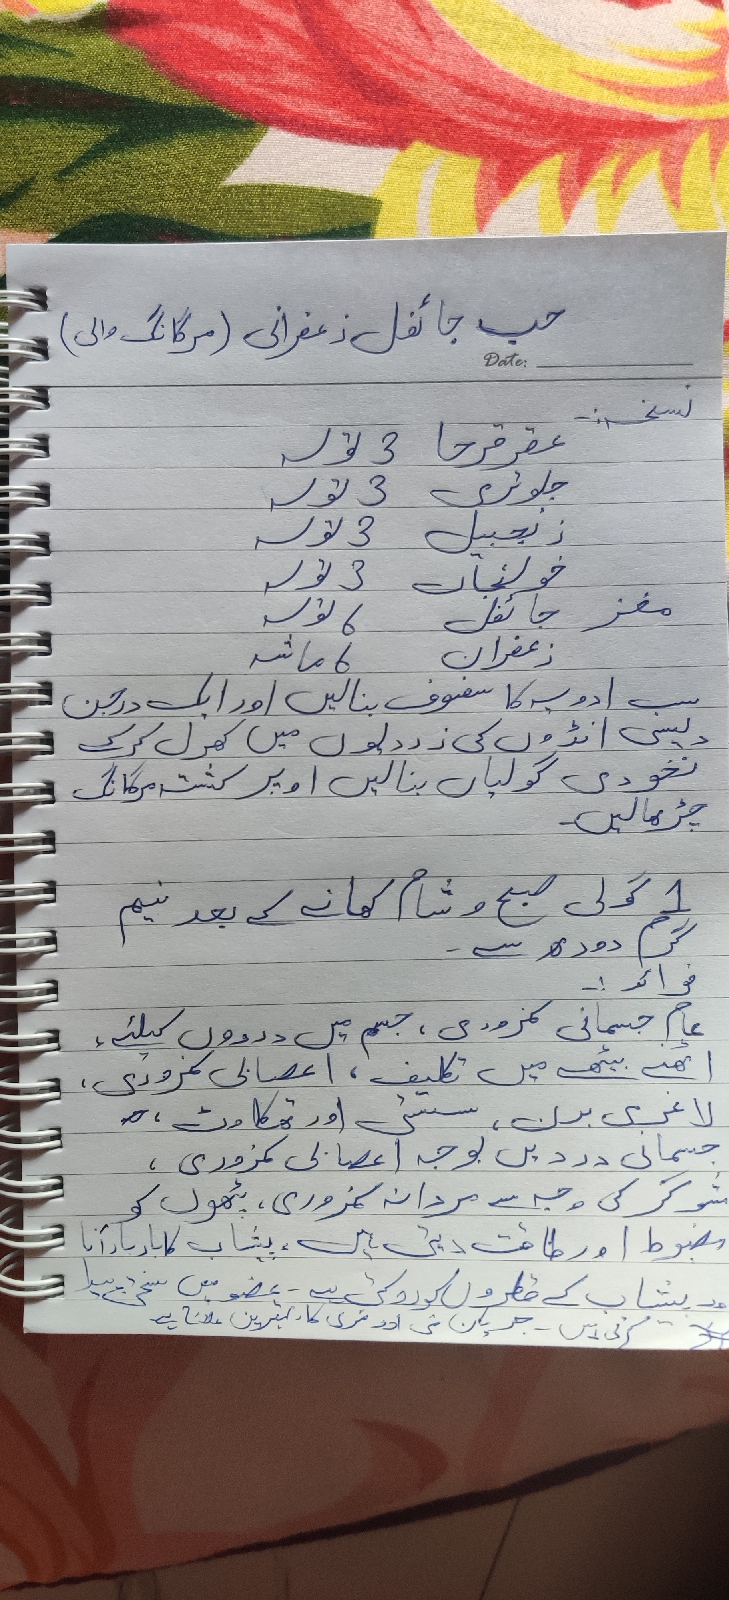 حب جائفل زعفرانی (مرگانگ والی)
Date:
نسخہ:-
عقرقرحا 3 تولہ
جلوتری 3 تولہ
زنجبیل 3 تولہ
خولنجان 3 تولہ
مغز جائفل 6 تولہ
زعفران 6 ماشہ
سب ادویہ کا سفوف بنالیں اور ایک درجن
دیسی انڈوں کی زردیوں میں کھرل کرکے
نخودی گولیاں بنالیں اوپر کشتہ مرگانگ
چڑھالیں۔
1 گولی صبح و شام کھانے کے بعد نیم
گرم دودھ سے۔
فوائد :-
عام جسمانی کمزوری، جسم میں دردوں کیلئے،
اٹھنے بیٹھنے میں تکلیف، اعصابی کمزوری،
لاغری بدن، سستی اور تھکاوٹ،
جسمانی دردیں بوجہ اعصابی کمزوری،
شوگر کی وجہ سے مردانہ کمزوری، پٹھوں کو
مضبوط اور طاقت دیتی ہیں، پیشاب کا بار بار آنا
اور پیشاب کے قطروں کو روکتی ہے۔ عضو میں سختی پیدا
کرتی ہیں۔ جریان منی اور مذی کا بہترین علاج ہے